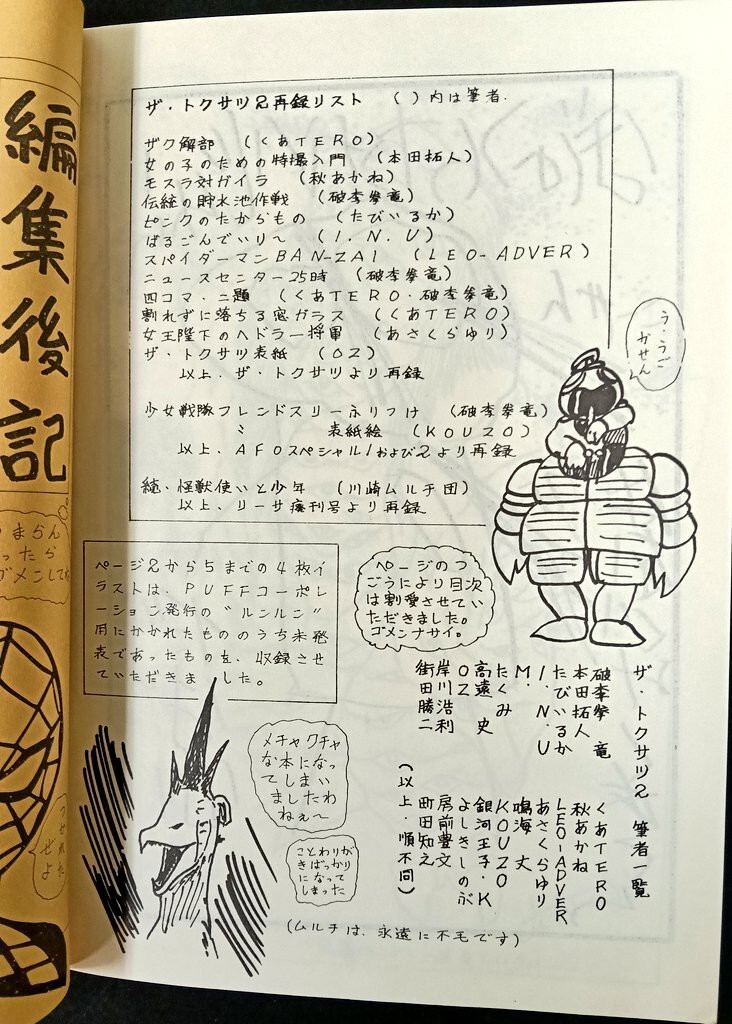 編集後記
ザ・トクサツ2再録リスト ( )内は筆者.
ザク解部 (くあTERO)
女の子のための特撮入門 (本田拓人)
モスラ対ガイラ (秋あかね)
伝統の貯水池作戦 (破李拳竜)
ピンクのたからもの (たびいるか)
ばるごんでいり～ (I.N.U)
スパイダーマンBAN-ZAI (LEO-ADVER)
ニュースセンター25時 (破李拳竜)
四コマ・二題 (くあTERO・破李拳竜)
割れずに落ちる窓ガラス (くあTERO)
女王陛下のヘドラー将軍 (あさくらゆり)
ザ・トクサツ表紙 (OZ)
以上、ザ・トクサツより再録
少女戦隊フレンドスリーふりつけ (破李拳竜)
〃 表紙絵 (KOUZO)
以上、AFOスペシャル1および2より再録
続・怪獣使いと少年 (川崎ムルチ団)
以上、リーサ廃刊号より再録
う・うご
かせん
ページ2から5までの4枚イ
ラストは、PUFFコーポレ
ーション発行の“ルンルン”
用にかかれたもののうち未発
表であったものを、収録させ
ていただきました。
ページのつ
ごうにより目次
は割愛させてい
ただきました。
ゴメンナサイ。
メチャクチャ
な本になっ
てしまい
ましたわ
ねぇ～
ことわりが
きばっかり
になって
しまった
(ムルチは、永遠に不毛です)
ザ・トクサツ2 筆者一覧
破李拳 竜 くあTERO
本田拓人 秋あかね
たびいるか LEO-ADVER
I.N.U あさくらゆり
M. 鳴海 丈
たくみ KOUZO
高遠 史 銀河王子・K
OZ よしきしのぶ
岸川浩利 房前豊文
街田勝二 町田知之
(以上・順不同)
まらん
ったら
ゴメンして
ぜよ